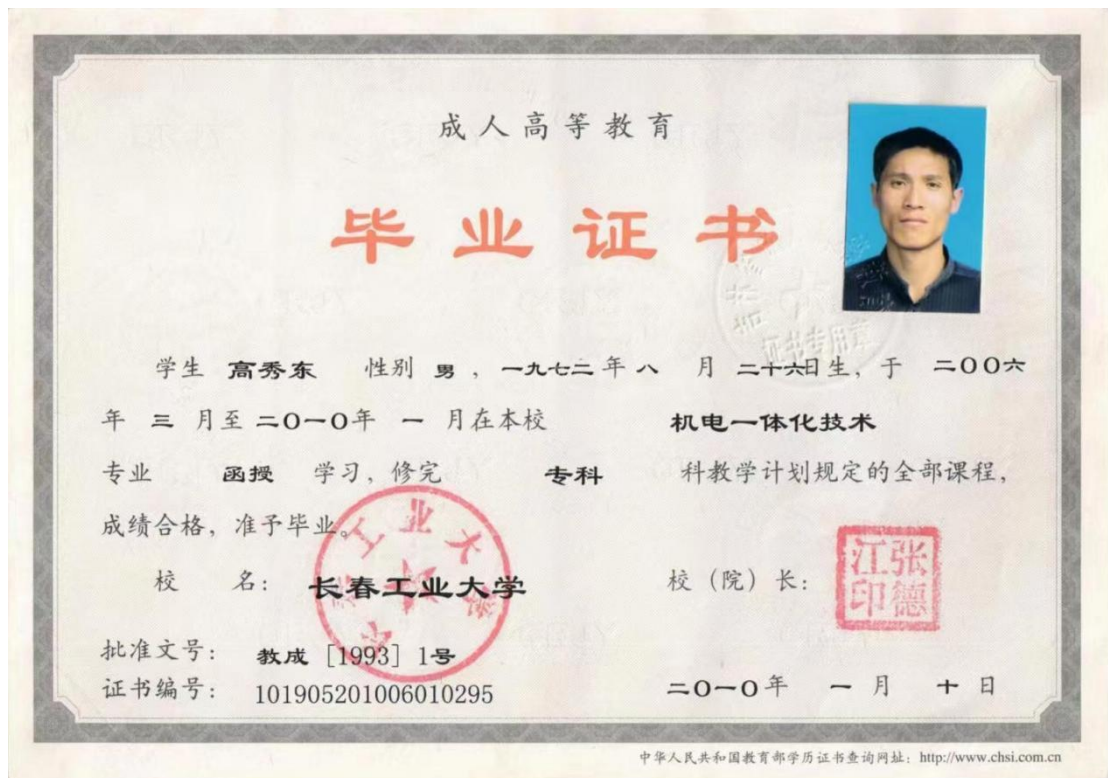 成人高等教育
毕业证书
证书专用章
学生 高秀东 性别 男 ，一九七二年 八 月 二十六日生，于 二〇〇六
年 三 月至 二〇一〇年 一 月在本校 机电一体化技术
专业 函授 学习，修完 专科 科教学计划规定的全部课程，
成绩合格，准予毕业。
校 名： 长春工业大学
校（院）长：
张德江印
批准文号： 教成［1993］1号
证书编号： 101905201006010295
二〇一〇年 一 月 十 日
中华人民共和国教育部学历证书查询网址：http://www.chsi.com.cn